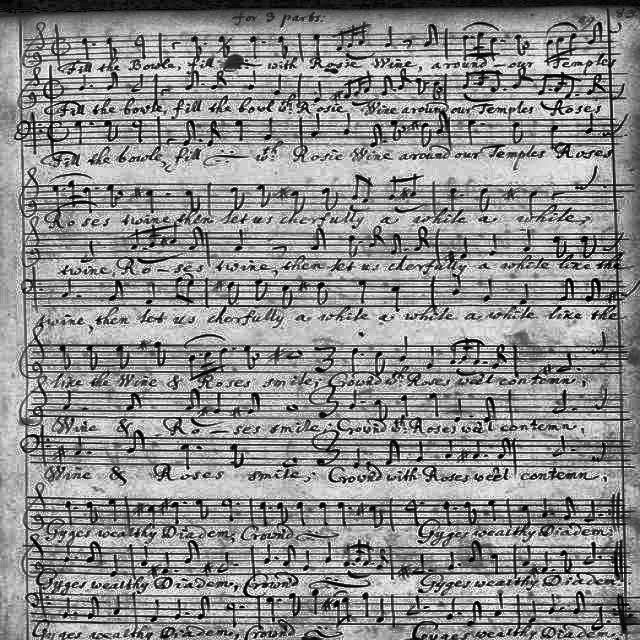 for 3 parts.
Fill the Bowle, fill with Rosie Wine, around our Temples
Fill the bowle, fill the bowl wth Rosie Wine around our Temples Roses
Fill the bowle, fill wth Rosie Wine around our Temples Roses
Roses twine, then let us cherfully a while a while,
twine, Ro-ses twine, then let us cherfully a while like the
twine, then let us cherfully a while a while a while like the
like the Wine & Roses smile; Crownd wth Roses weel contemn,
Wine & Ro-ses smile; Crownd wth Roses weel contemn,
Wine & Roses smile; Crownd with Roses weel contemn,
Gyges wealthy Diadem, Crownd Gyges wealthy Diadem.
Gyges wealthy Diadem, Crownd Gyges wealthy Diadem.
Gyges wealthy Diadem, Crownd Gyges wealthy Diadem